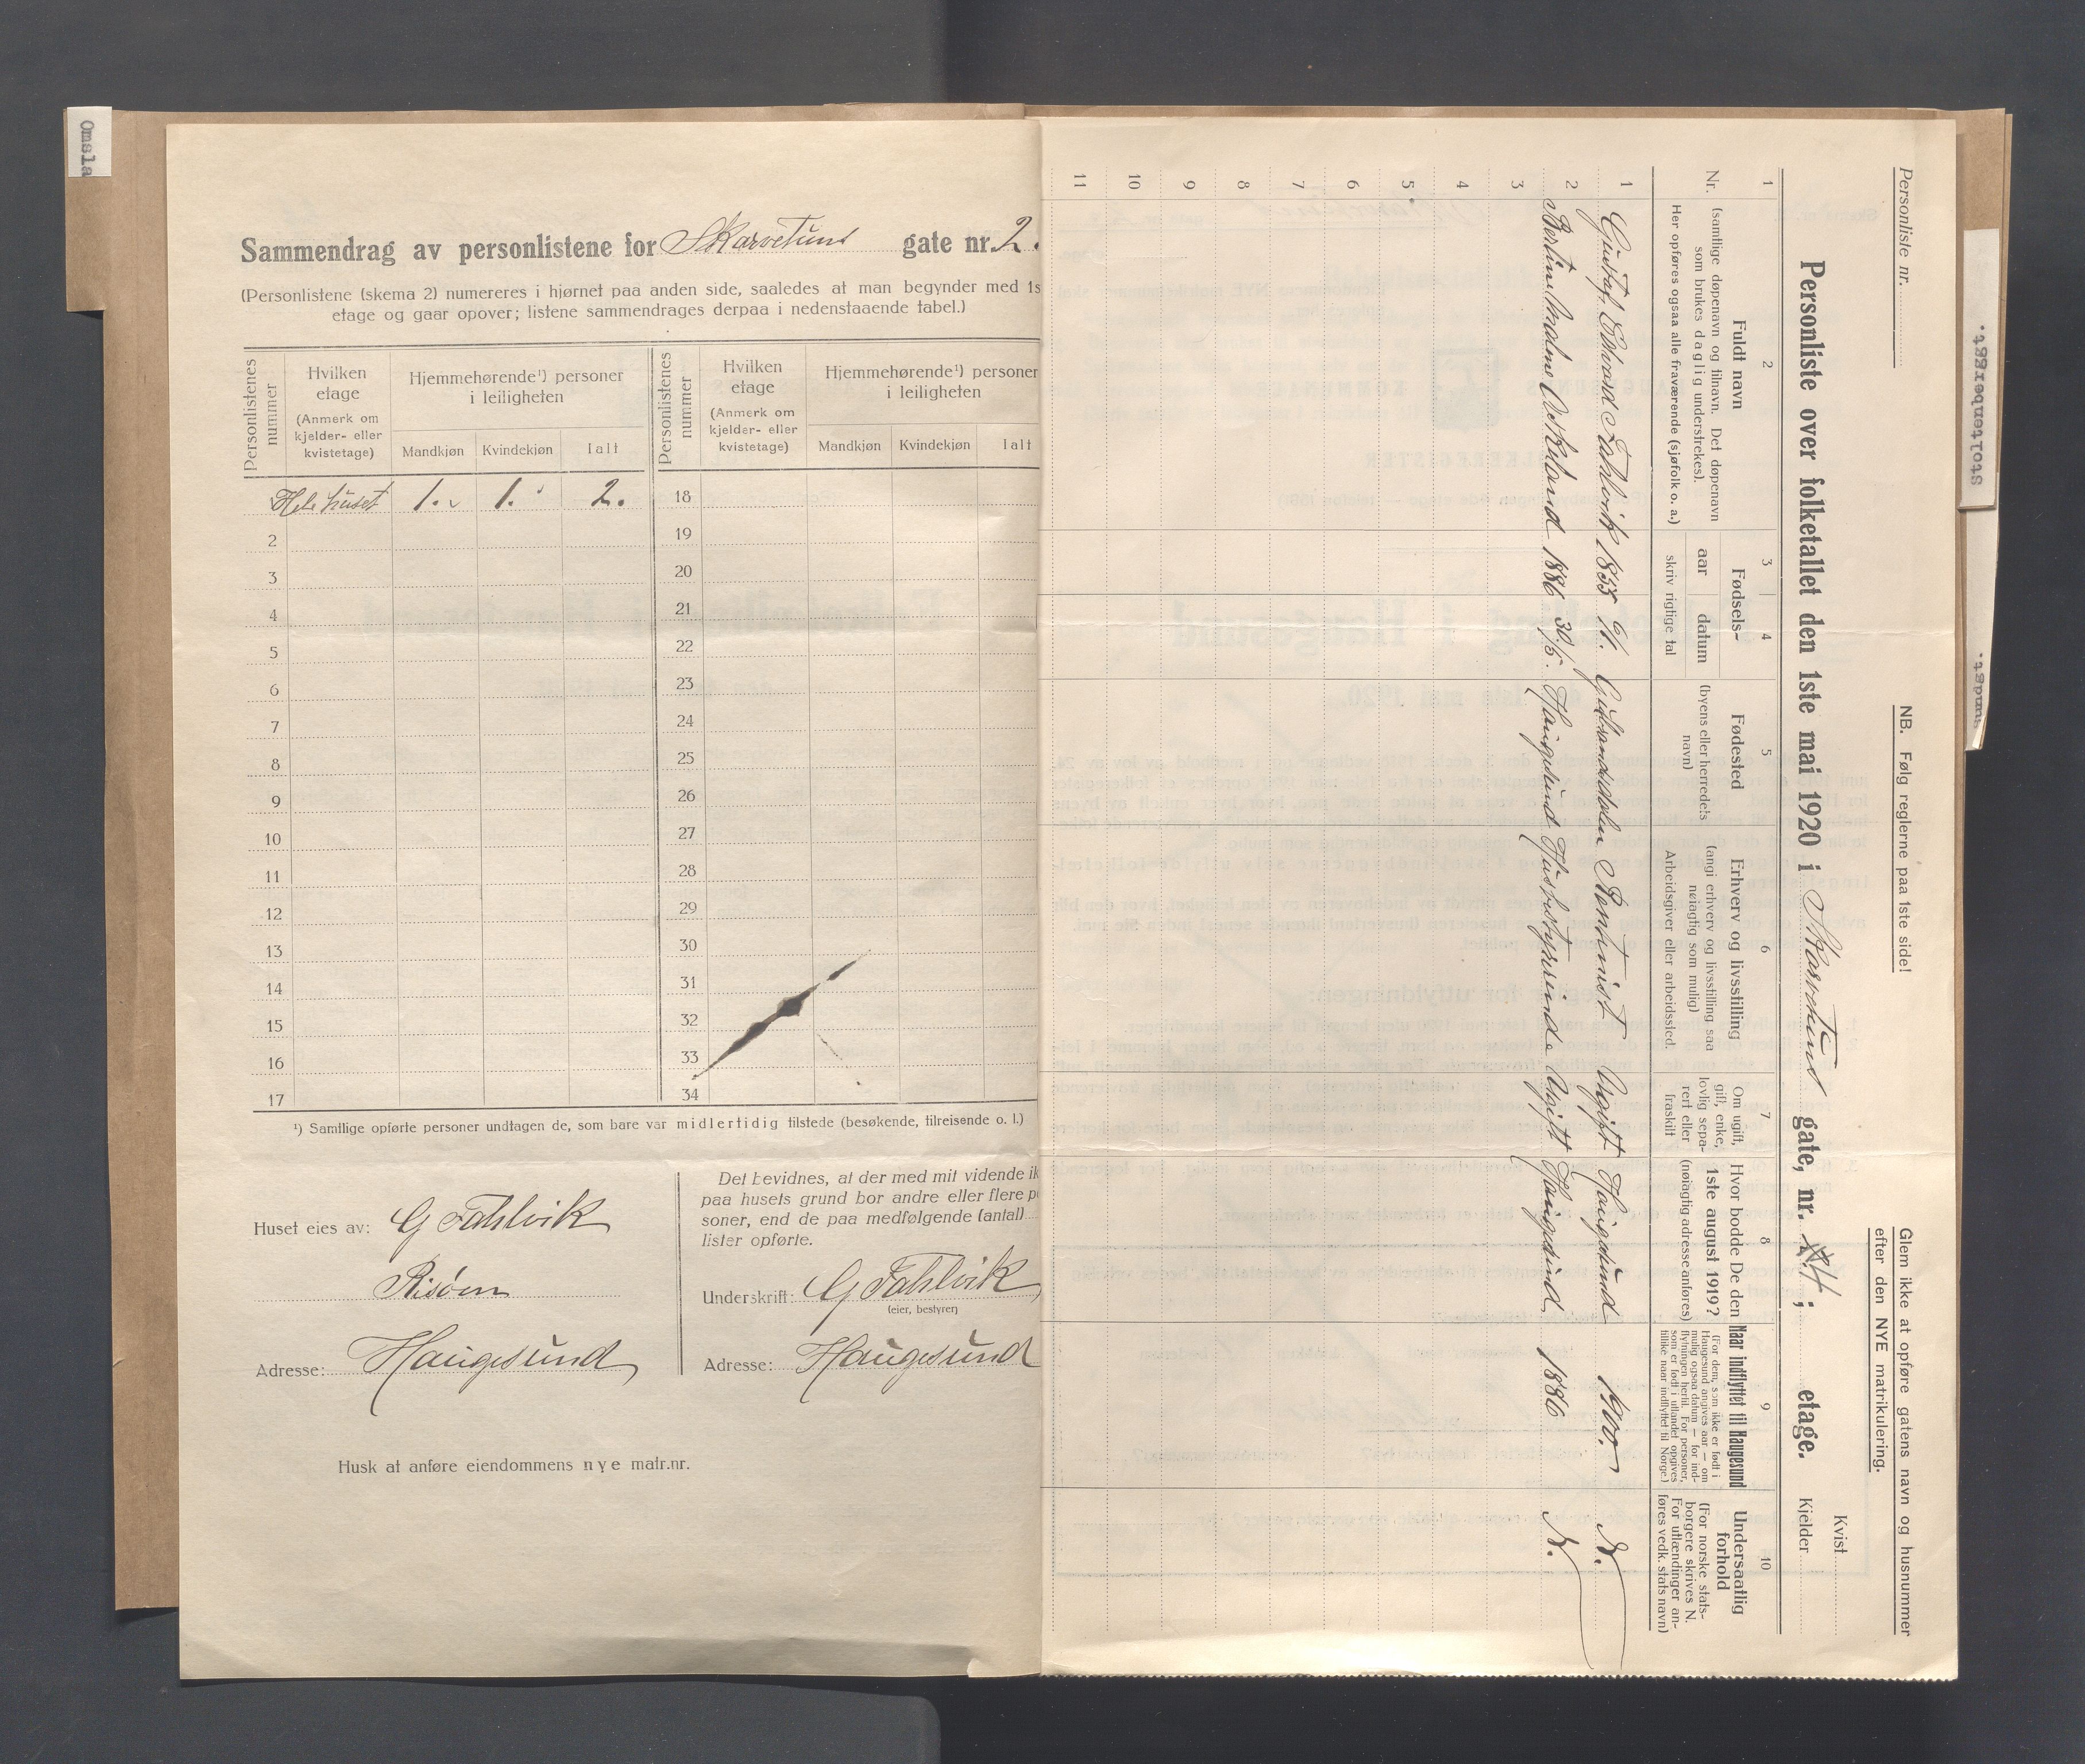 Omsla
Sammendrag av personlistene for Skarvesund gate nr. 2.
(Personlistene (skema 2) numereres i hjørnet paa anden side, saaledes at man begynder med 1s
etage og gaar opover; listene sammendrages derpaa i nedenstaaende tabel.)
Personlistenes nummer
Hvilken etage
(Anmerk om kjelder- eller kvistetage)
Hjemmehørende¹) personer i leiligheten
Mandkjøn
Kvindekjøn
Ialt
Personlistenes nummer
Hvilken etage
(Anmerk om kjelder- eller kvistetage)
Hjemmehørende¹) personer i leiligheten
Mandkjøn
Kvindekjøn
Ialt
Hele huset 1. 1. 2. 18
2 19
3 20
4 21
5 22
6 23
7 24
8 25
9 26
10 27
11 28
12 29
13 30
14 31
15 32
16 33
17 34
¹) Samtlige opførte personer undtagen de, som bare var midlertidig tilstede (besøkende, tilreisende o. l.)
Huset eies av: G Fahlvik
Risøen
Adresse: Haugesund
Det bevidnes, at der med mit vidende ik
paa husets grund bor andre eller flere pe
soner, end de paa medfølgende (antal)
lister opførte.
Underskrift: G Fahlvik
(eier, bestyrer)
Adresse: Haugesund
Husk at anføre eiendommens nye matr.nr.
Personliste nr.
NB. Følg reglerne paa 1ste side!
Glem ikke at opføre gatens navn og husnummer
efter den NYE matrikulering.
Personliste over folketallet den 1ste mai 1920 i Skarvesund gate, nr. ; etage.
Kvist
Kjelder
1 2 3 4 5 6 7 8 9 10
Nr.
Fuldt navn
(samtlige døpenavn og tilnavn. Det døpenavn
som brukes daglig understrekes).
Her opføres ogsaa alle fraværende (sjøfolk o. a.)
Fødsels-
aar
datum
skriv rigtige tal
Fødested
(byens eller herredets
navn)
Erhverv og livsstilling
(angi erhverv og livsstilling saa
nøiagtig som mulig)
Arbeidsgiver eller arbeidssted.
Om ugift,
gift, enke,
lovlig sepa-
rert eller
fraskilt
Hvor bodde De den
1ste august 1919?
(nøiagtig adresse anføres)
Naar indflyttet til Haugesund
(For dem, som ikke er født i
Haugesund angives aar — om
mulig ogsaa datum — for ind-
flytningen hertil. For personer,
som er født i utlandet opgives
tillike naar indflyttet til Norge.)
Undersaatlig
forhold
(For norske stats-
borgere skrives N.
For utlændinger an-
føres vedk. stats navn)
1 Gustaf Edvard Fahlvik 1855 Gudbrandsdalen Rentenist Ugift Haugesund 1900. N.
2 Berlin Andrine Veskeland 1886 30/5. Haugesund Husbestyrerinde Ugift Haugesund 1886 N.
3
4
5
6
7
8
9
10
11
Stoltenberggt.
sundgt.